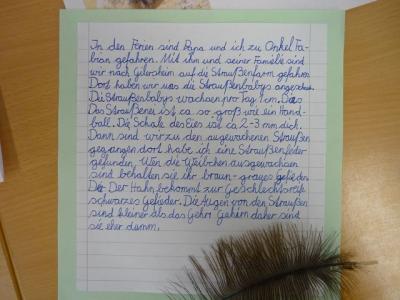 In den Ferien sind Papa und ich zu Onkel Fa-
bian gefahren. Mit ihm und seiner Familie sind
wir nach Gilersheim auf die Straußenfarm gefahren
Dort haben wir uns die Straußenbabys angeschaut.
Die Straußenbabys wachsen pro Tag 1 cm. Das
Das Straußenei ist ca. so groß wie ein Hand-
ball. Die Schale des Eies ist ca 2-3 mm dick.
Dann sind wir zu den ausgewachsenen Straußen
gegangen dort habe ich eine Straußenfeder
gefunden. Wen die Weibchen ausgewachsen
sind behalten sie ihr braun-graues Gefieder.
Der Der Hahn bekommt zur Geschlechtsreife
schwarzes Gefieder. Die Augen von den Straußen
sind kleiner als das Gehirn daher sind
sie eher dumm.